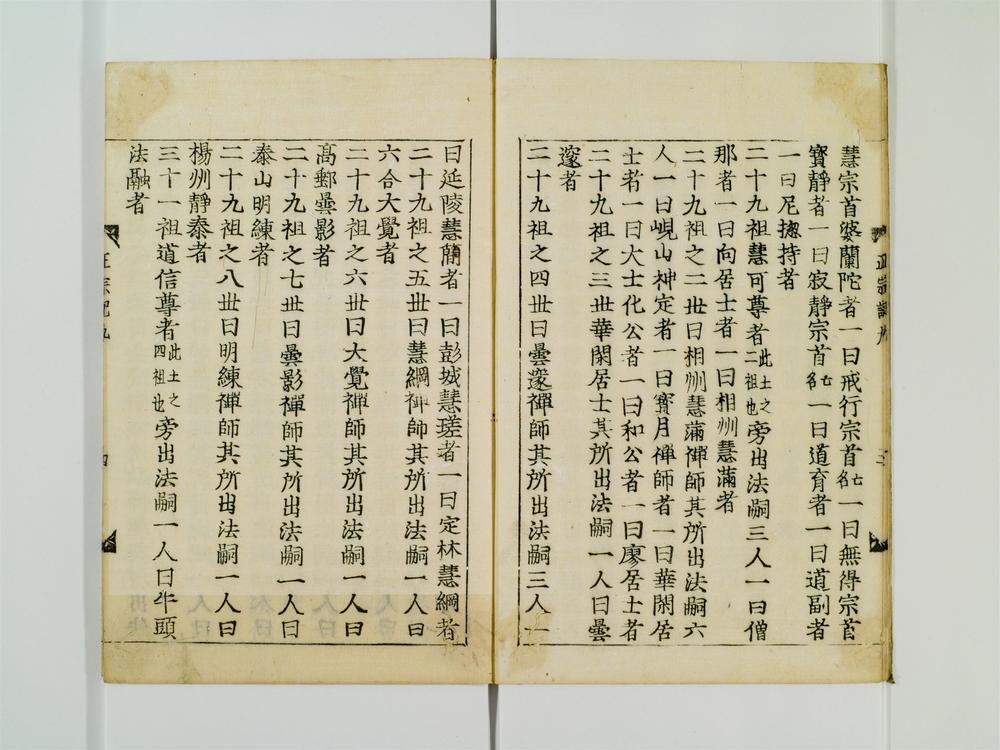 慧宗首婆蘭陀者一曰戒行宗首亡名一曰無得宗首
寶靜者一曰寂靜宗首亡名一曰道育者一曰道副者
一曰尼揔持者
二十九祖慧可尊者此土之二祖也旁出法嗣三人一曰僧
那者一曰向居士者一曰相州慧滿者
二十九祖之二世曰相州慧滿禪師其所出法嗣六
人一曰峴山神定者一曰寶月禪師者一曰華閑居
士者一曰大士化公者一曰和公者一曰廖居士者
二十九祖之三世華閑居士其所出法嗣一人曰曇
邃者
二十九祖之四世曰曇邃禪師其所出法嗣三人一
曰延陵慧簡者一曰彭城慧瑳者一曰定林慧綱者
二十九祖之五世曰慧綱禪師其所出法嗣一人曰
六合大覺者
二十九祖之六世曰大覺禪師其所出法嗣一人曰
高郵曇影者
二十九祖之七世曰曇影禪師其所出法嗣一人曰
泰山明練者
二十九祖之八世曰明練禪師其所出法嗣一人曰
楊州靜泰者
三十一祖道信尊者此土之四祖也旁出法嗣一人曰牛頭
法融者